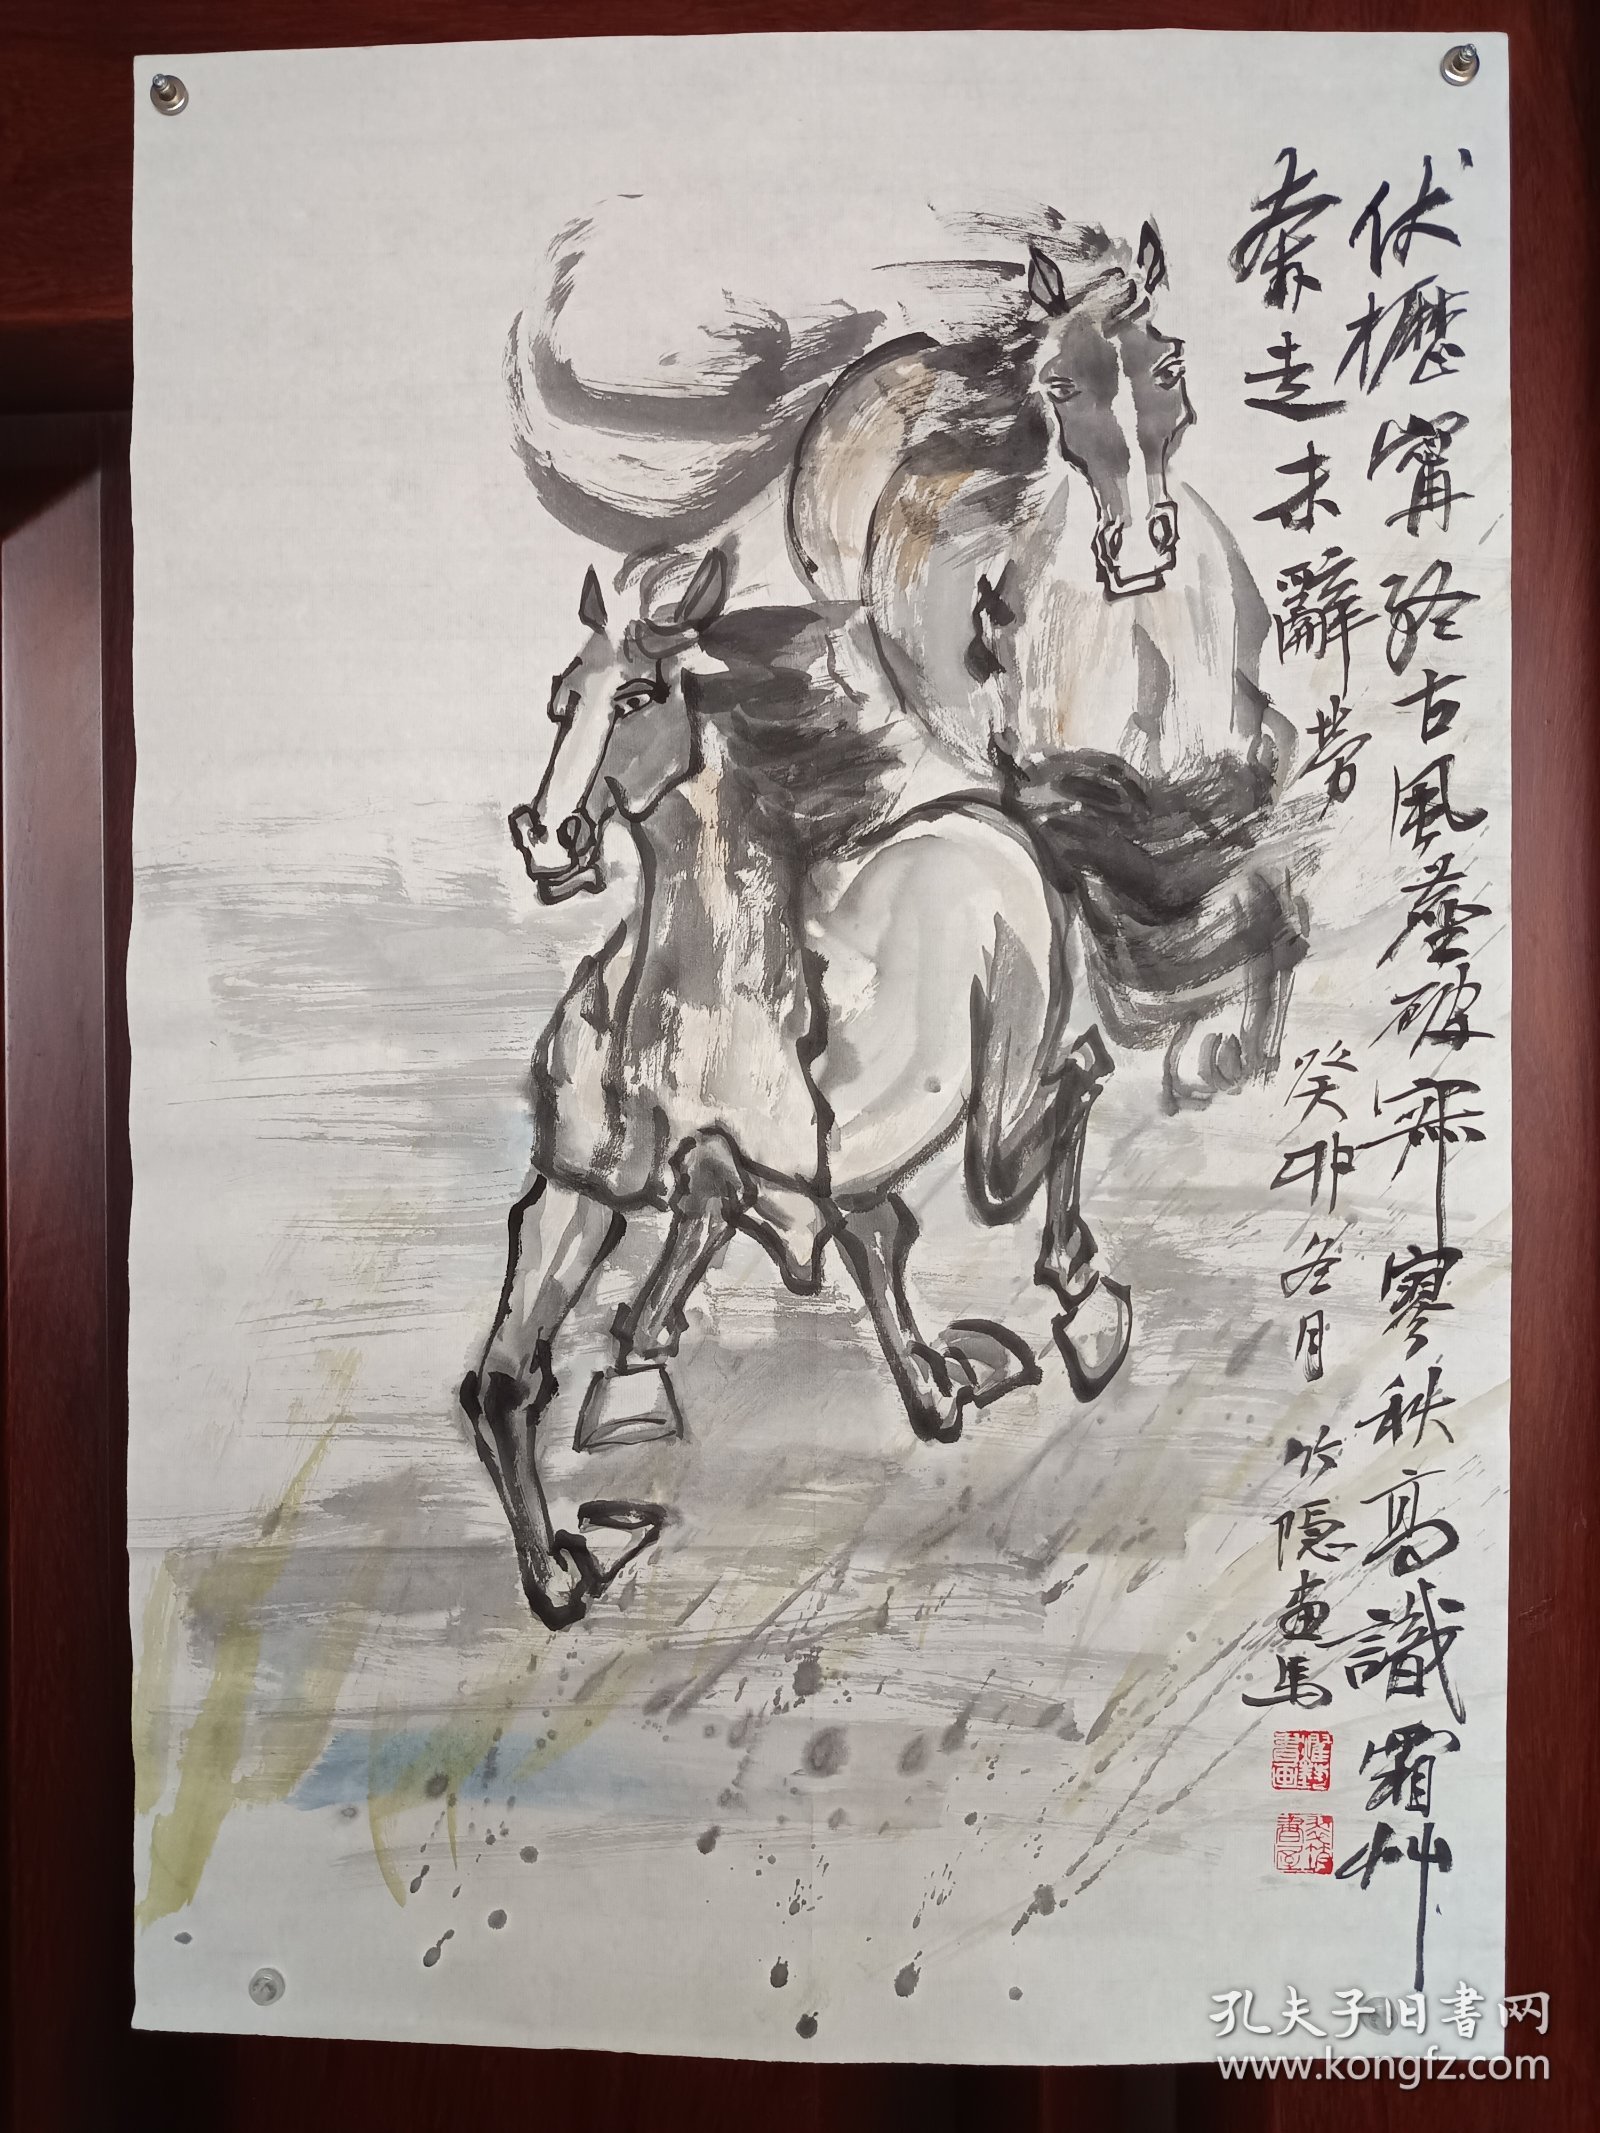 伏櫪甯終古風塵破寂寥秋高識霜艸
奔走未辭勞
癸卯冬月
竹隱畫馬
孔夫子旧书网
www.kongfz.com